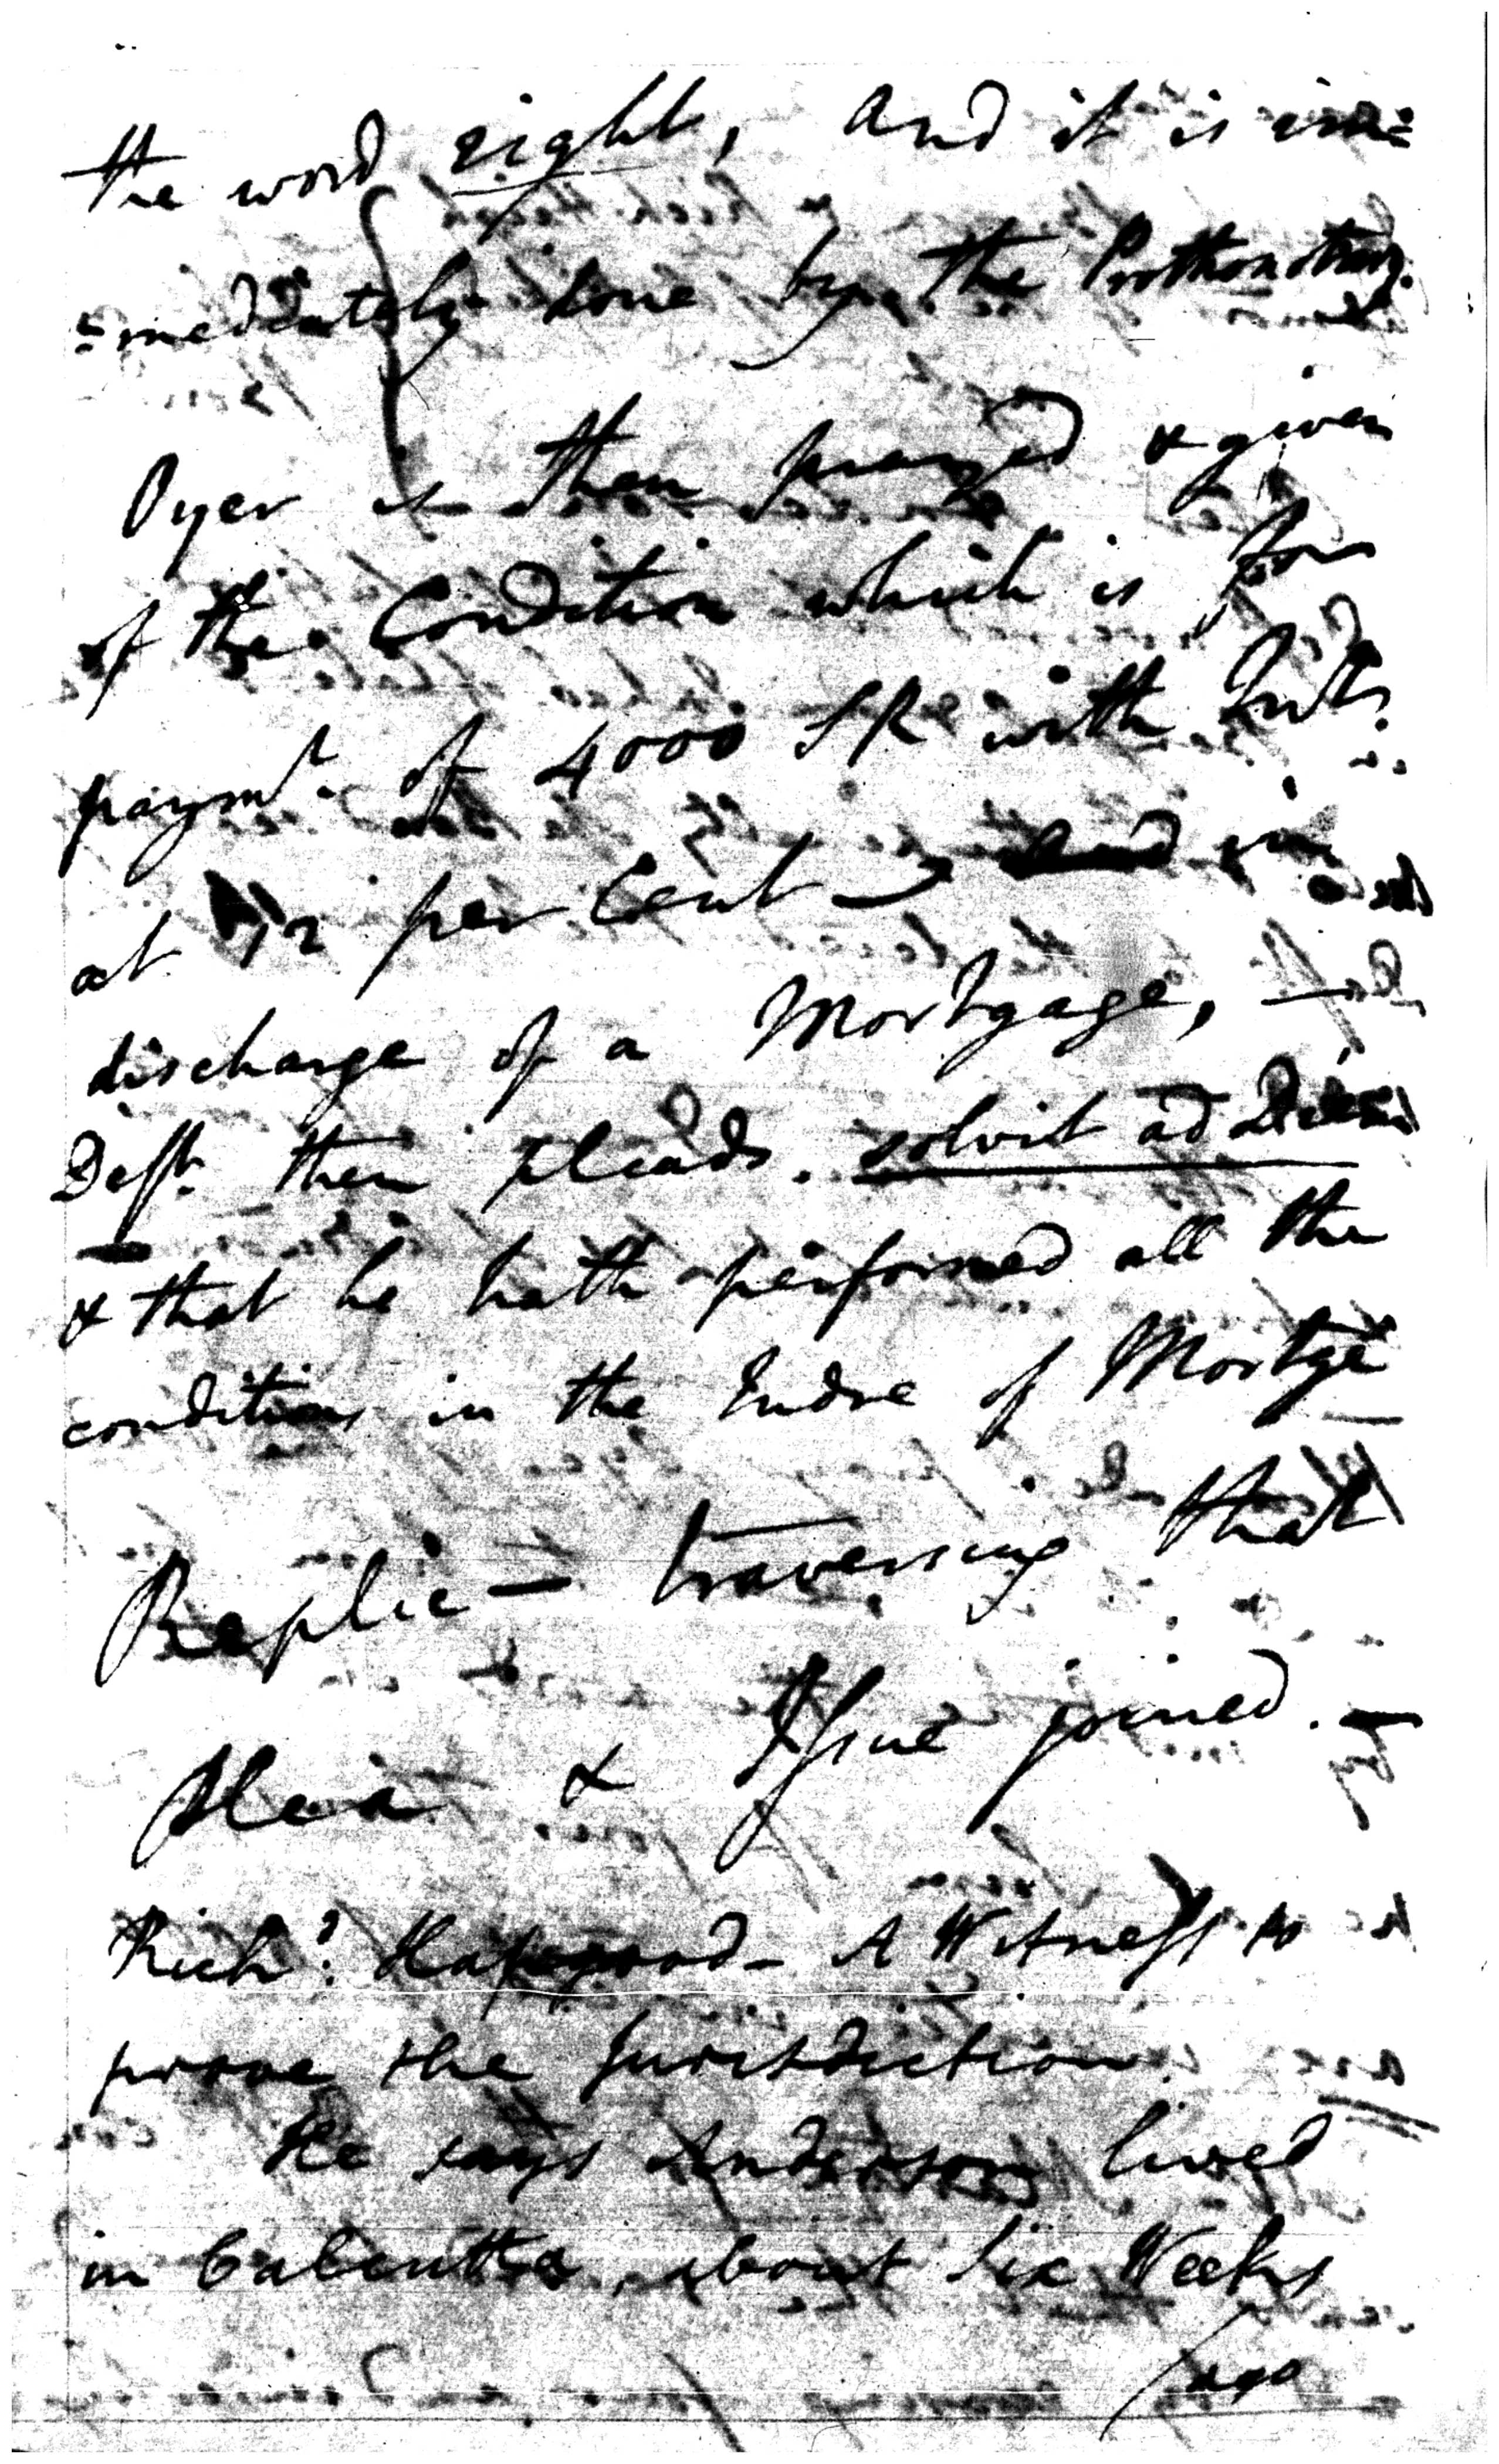 the word right, And it is im=
=mediately done by the Prothonotary.
Oyer is then prayed & given
of the Condition which is for
paymt. of 4000 SR with Intt.
at 12 per Cent in
discharge of a Mortgage, —
Deft. then pleads. solvit ad Diem
& that he hath performed all the
conditions in the Indre of Mortge
Replic — traversing that
Plea & Issue joined. —
Richd. Hapgood - A Witness to
prove the Jurisdiction.
He says Anderson lived
in Calcutta, about Six Weeks
ago